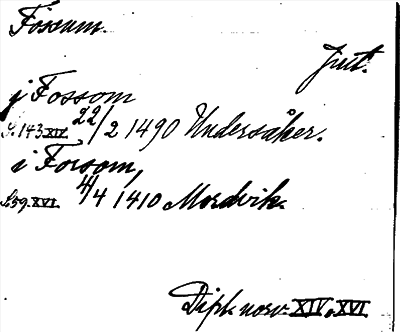 Fossum.
Jmt.
j Fossom
S. 143 XIV. 22/2 1490 Undersåker.
i Forsom,
S. 59. XVI. 4/4 1410 Mordvik.
Dipl. norv. XIV o. XVI